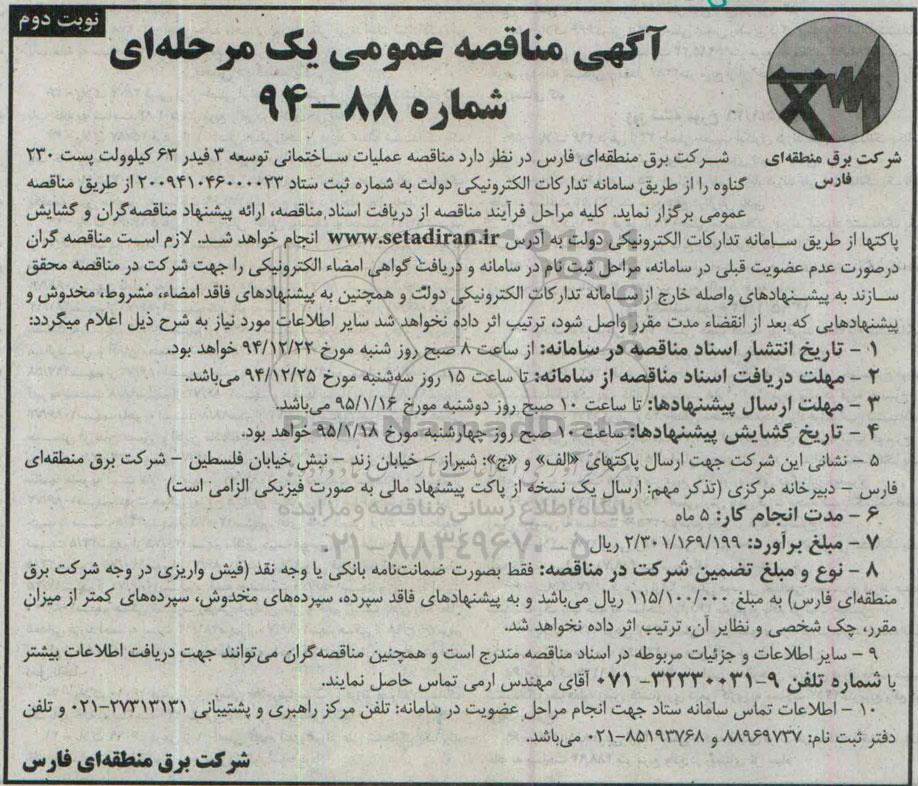 نوبت دوم
آگهی مناقصه عمومی یک مرحله‌ای
شماره ۸۸-۹۴
شرکت برق منطقه‌ای
فارس
شـرکت برق منطقه‌ای فارس در نظر دارد مناقصه عملیات ساختمانی توسعه ۳ فیدر ۶۳ کیلوولت پست ۲۳۰
گناوه را از طریق سامانه تدارکات الکترونیکی دولت به شماره ثبت ستاد ۲۰۰۹۴۱۰۴۶۰۰۰۰۲۳ از طریق مناقصه
عمومی برگزار نماید. کلیه مراحل فرآیند مناقصه از دریافت اسناد مناقصه، ارائه پیشنهاد مناقصه‌گران و گشایش
پاکتها از طریق سـامانه تدارکات الکترونیکی دولت به آدرس www.setadiran.ir انجام خواهد شـد. لازم اسـت مناقصه گران
درصورت عدم عضویت قبلی در سامانه، مراحل ثبت نام در سامانه و دریافت گواهی امضاء الکترونیکی را جهت شرکت در مناقصه محقق
سـازند به پیشـنهادهای واصله خارج از سـامانه تدارکات الکترونیکی دولت و همچنین به پیشنهادهای فاقد امضاء، مشروط، مخدوش و
پیشنهادهایی که بعد از انقضاء مدت مقرر واصل شود، ترتیب اثر داده نخواهد شد سایر اطلاعات مورد نیاز به شرح ذیل اعلام میگردد:
۱ - تاریخ انتشار اسناد مناقصه در سامانه: از ساعت ۸ صبح روز شنبه مورخ ۹۴/۱۲/۲۲ خواهد بود.
۲ - مهلت دریافت اسناد مناقصه از سامانه: تا ساعت ۱۵ روز سه‌شنبه مورخ ۹۴/۱۲/۲۵ می‌باشد.
۳ - مهلت ارسال پیشنهادها: تا ساعت ۱۰ صبح روز دوشنبه مورخ ۹۵/۱/۱۶ می‌باشد.
۴ - تاریخ گشایش پیشنهادها: ساعت ۱۰ صبح روز چهارشنبه مورخ ۹۵/۱/۱۸ خواهد بود.
۵ - نشانی این شرکت جهت ارسال پاکتهای «الف» و «ج»: شیراز - خیابان زند - نبش خیابان فلسطین - شرکت برق منطقه‌ای
فارس - دبیرخانه مرکزی (تذکر مهم: ارسال یک نسخه از پاکت پیشنهاد مالی به صورت فیزیکی الزامی است)
۶ - مدت انجام کار: ۵ ماه
۷ - مبلغ برآورد: ۲/۳۰۱/۱۶۹/۱۹۹ ریال
۸ - نوع و مبلغ تضمین شرکت در مناقصه: فقط بصورت ضمانت‌نامه بانکی یا وجه نقد (فیش واریزی در وجه شرکت برق
منطقه‌ای فارس) به مبلغ ۱۱۵/۱۰۰/۰۰۰ ریال می‌باشد و به پیشنهادهای فاقد سپرده، سپرده‌های مخدوش، سپرده‌های کمتر از میزان
مقرر، چک شخصی و نظایر آن، ترتیب اثر داده نخواهد شد.
۹ - سایر اطلاعات و جزئیات مربوطه در اسناد مناقصه مندرج است و همچنین مناقصه‌گران می‌توانند جهت دریافت اطلاعات بیشتر
با شماره تلفن ۹-۳۲۳۳۰۰۳۱ -۰۷۱ آقای مهندس ارمی تماس حاصل نمایند.
۱۰ - اطلاعات تماس سامانه ستاد جهت انجام مراحل عضویت در سامانه: تلفن مرکز راهبری و پشتیبانی ۲۷۳۱۳۱۳۱-۰۲۱ و تلفن
دفتر ثبت نام: ۸۸۹۶۹۷۳۷ و ۸۵۱۹۳۷۶۸-۰۲۱ می‌باشد.
شرکت برق منطقه‌ای فارس
ParsNamadData
پایگاه اطلاع رسانی مناقصه و مزایده
۰۲۱-۸۸۳۴۹۶۷۰-۵